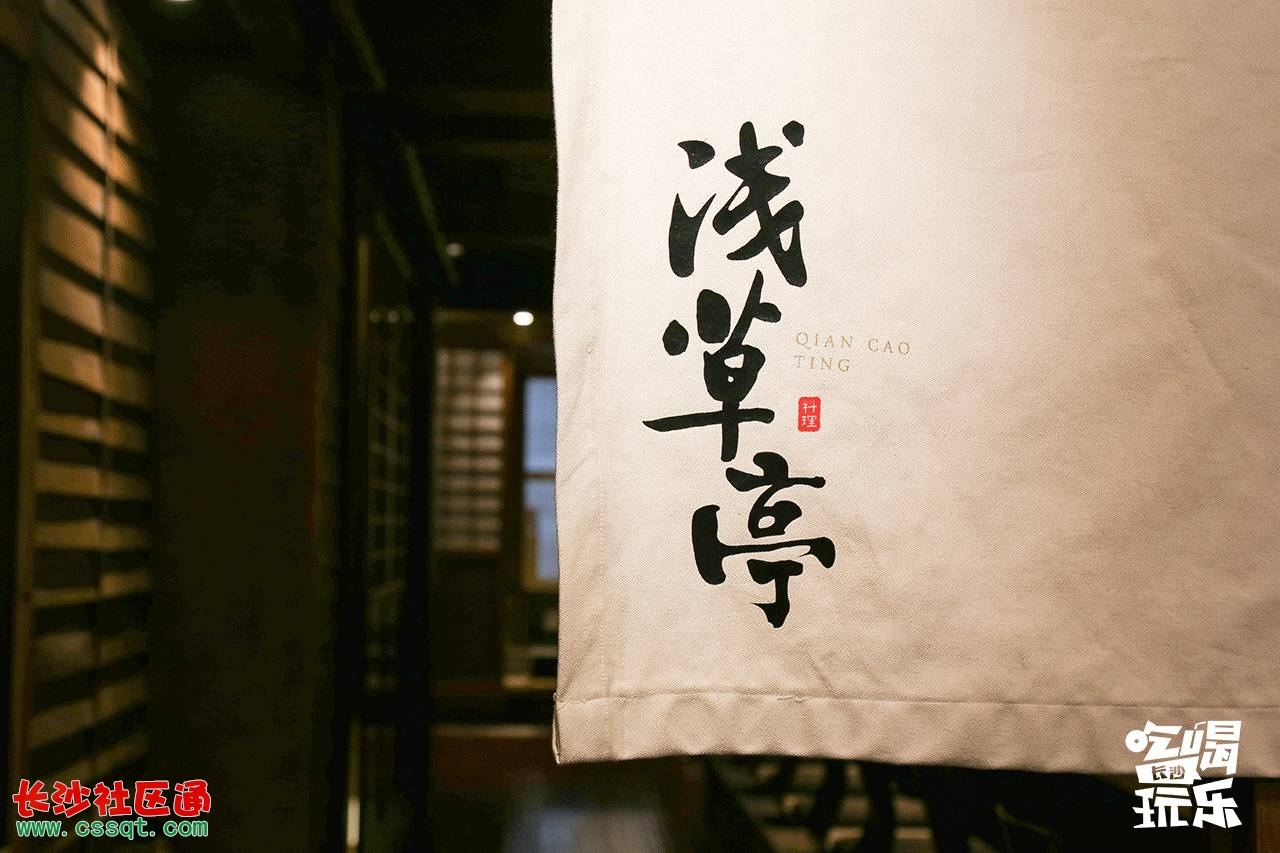 浅草亭
QIAN CAO
TING
料理
吃喝
长沙
玩乐
长沙社区通
www.cssqt.com